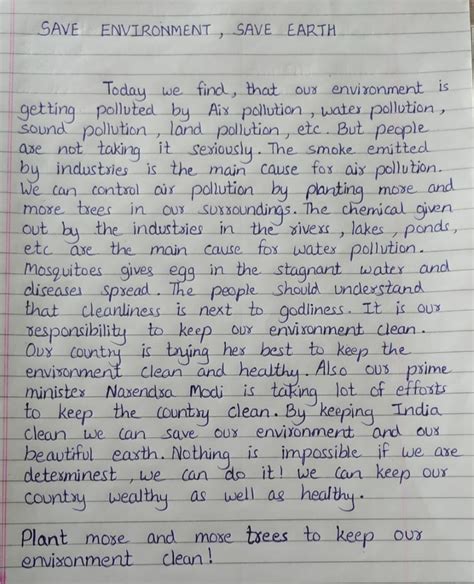 SAVE ENVIRONMENT, SAVE EARTH
Today we find, that our environment is
getting polluted by Air pollution, water pollution,
sound pollution, land pollution, etc. But people
are not taking it seriously. The smoke emitted
by industries is the main cause for air pollution.
We can control air pollution by planting more and
more trees in our surroundings. The chemical given
out by the industries in the rivers, lakes, ponds,
etc are the main cause for water pollution.
Mosquitoes gives egg in the stagnant water and
diseases spread. The people should understand
that cleanliness is next to godliness. It is our
responsibility to keep our environment clean.
Our country is trying her best to keep the
environment clean and healthy. Also our prime
minister Narendra Modi is taking lot of efforts
to keep the country clean. By keeping India
clean we can save our environment and our
beautiful earth. Nothing is impossible if we are
determinest, we can do it! We can keep our
country wealthy as well as healthy.
Plant more and more trees to keep our
environment clean!